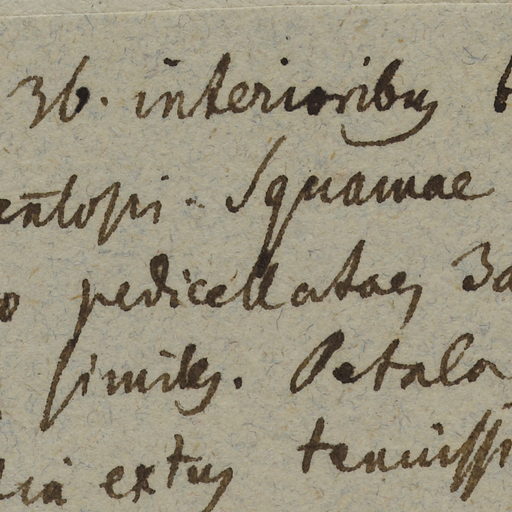 36. interioribus
Squamae
pedicellatae, 3a
similes. Petala
extus tenuissi